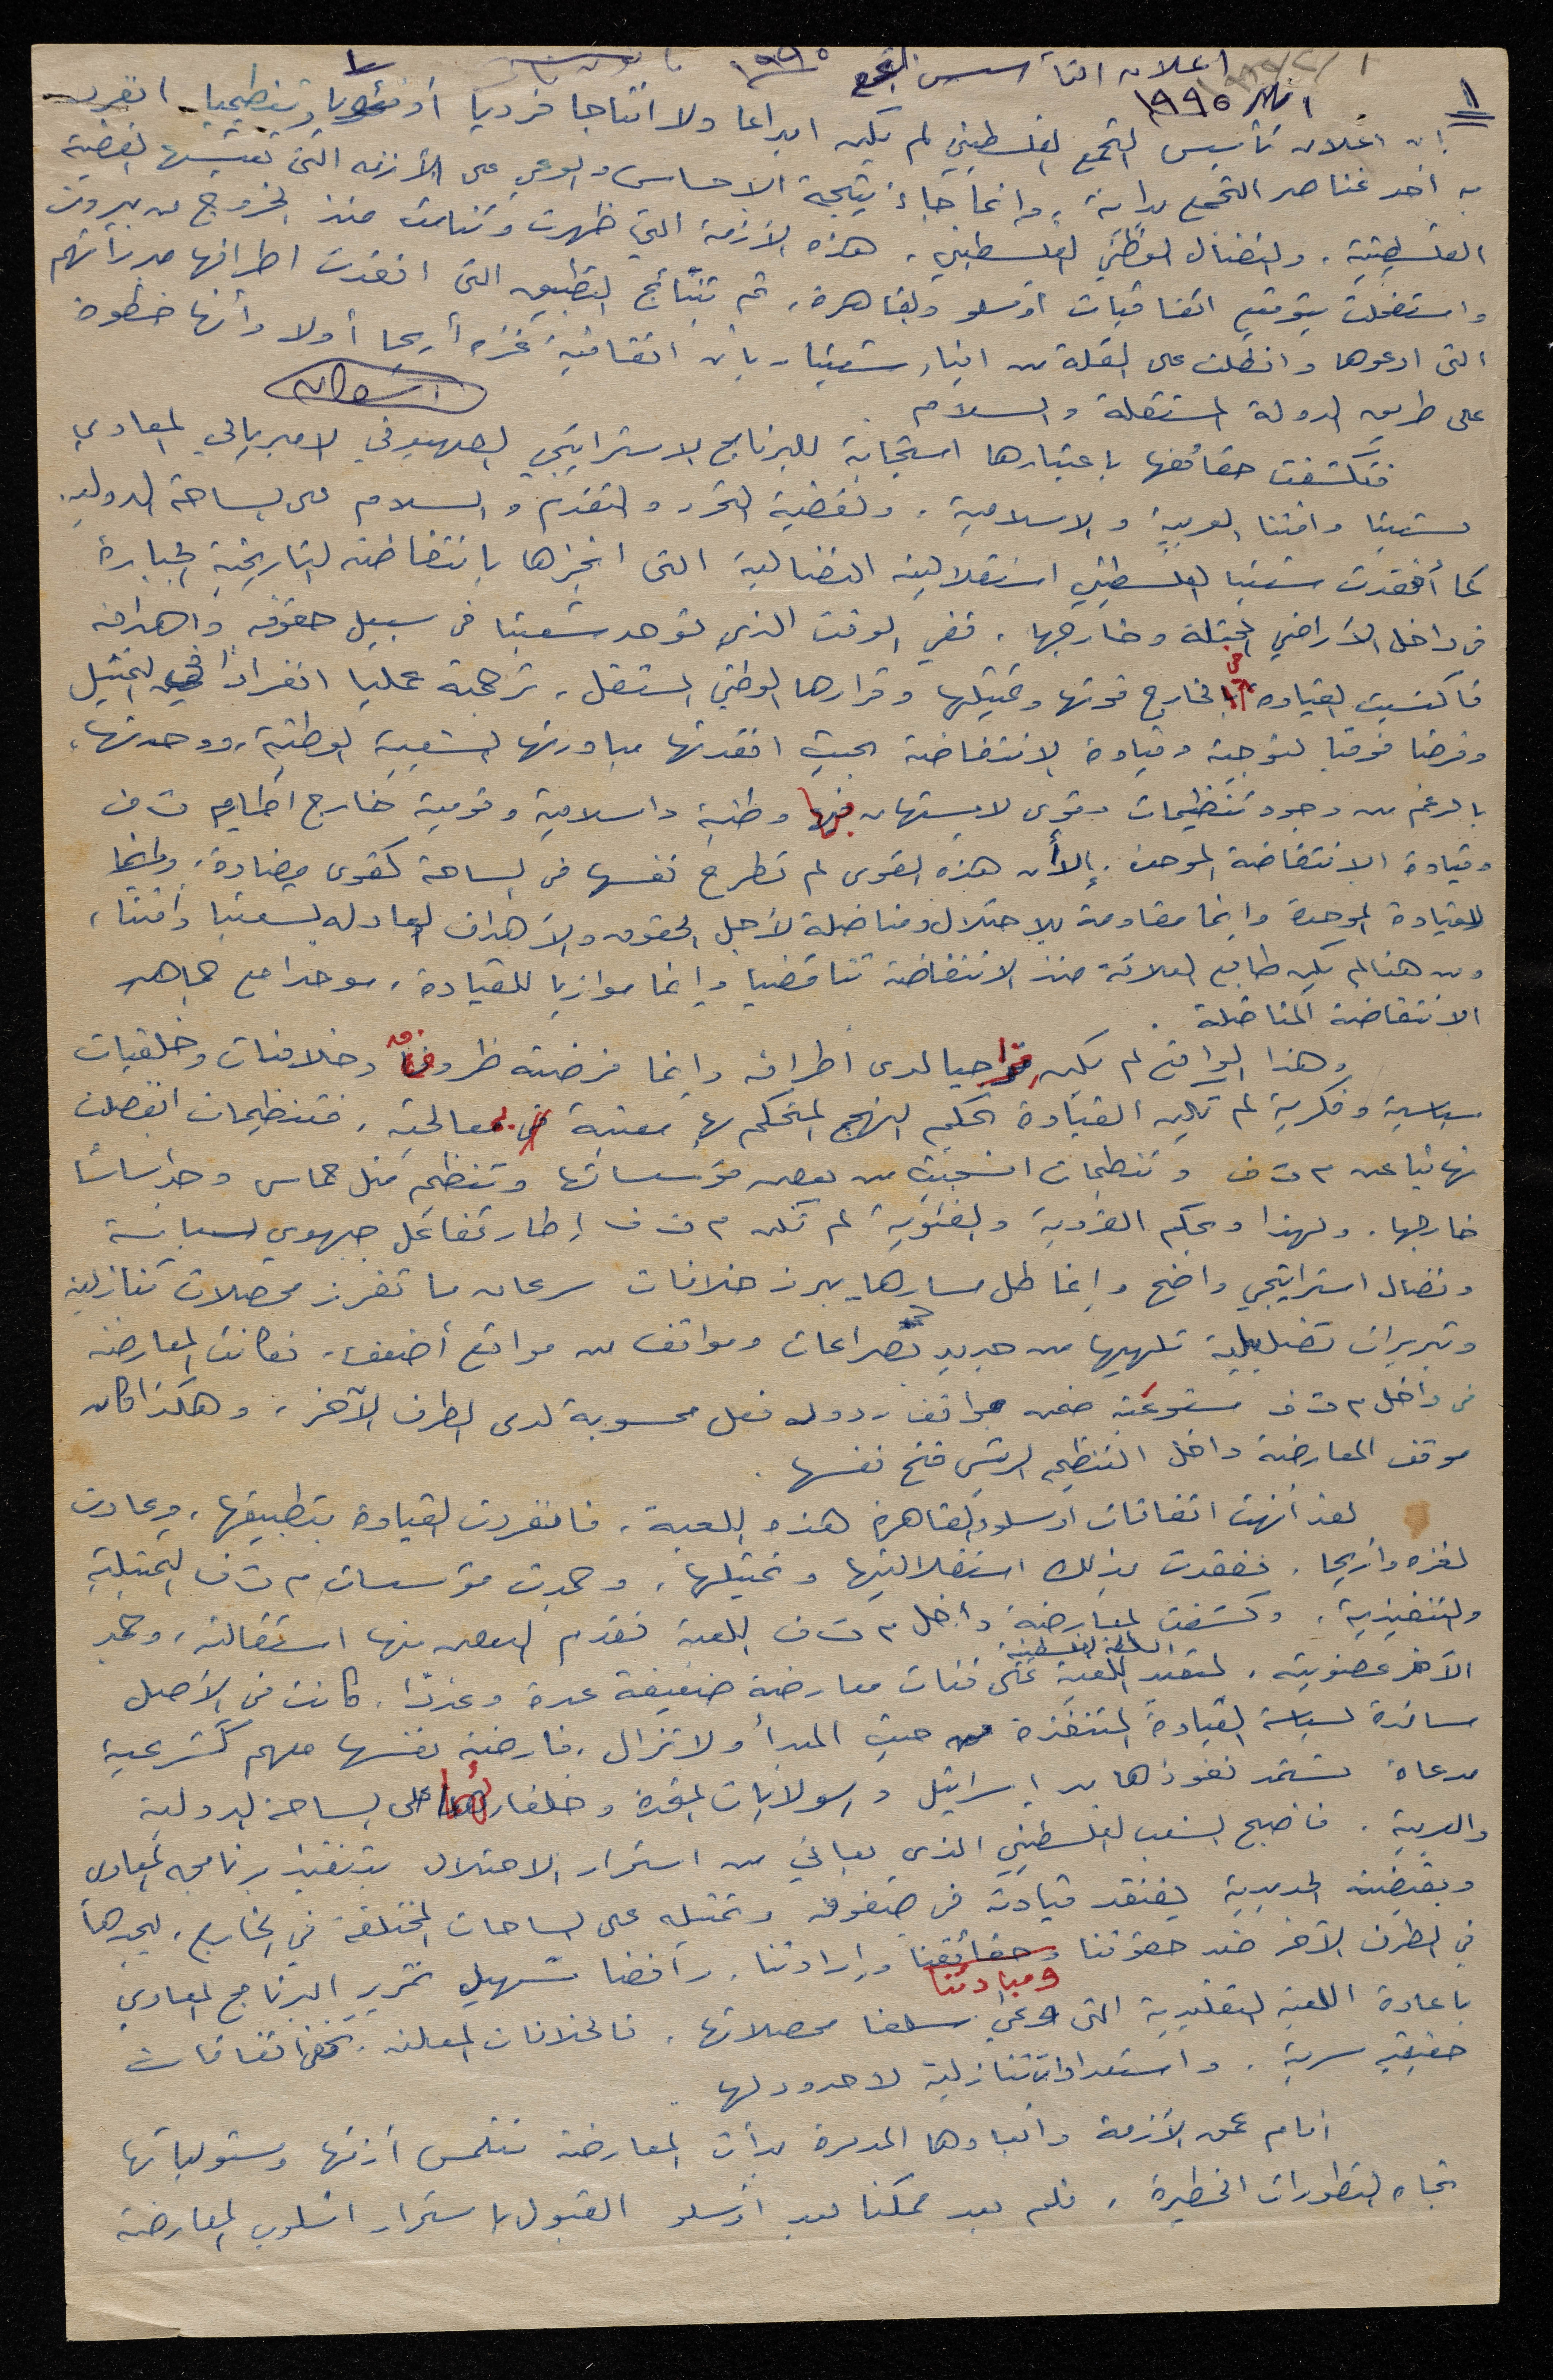 اعلان التأسيس التجمع ١٩٩٥
١
١٩٩٥
ان اعلان تأسيس التجمع الفلسطيني لم يكن ابداعا ولا انتاجا فرديا أو فئويا وتنظيميا انفرد
به أحد عناصر التجمع بداية، وإنما جاء نتيجة الاحساس والوعي على الأزمة التي تعيشها القضية
الفلسطينية، والنضال الوطني الفلسطيني، هذه الأزمة التي ظهرت وتنامت منذ الخروج من بيروت
واستفحلت بتوقيع اتفاقيات أوسلو والقاهرة، ثم نتائج التطبيق التي افقدت اطرافها مبرراتهم
التي ادعوها وانطلت على القلة من ابناء شعبنا، بأن اتفاقية غزه أريحا أولا وأنها خطوة
على طريق الدولة المستقلة والسلام
فتكشفت حقائقها باعتبارها استجابة للبرنامج الاستراتيجي الصهيوني الامبريالي المعادي
لشعبنا وامتنا العربية والاسلامية، ولقضية التحرر والتقدم والسلام على الساحة الدولية.
كما أفقدت شعبنا الفلسطيني استقلاليته النضالية التي انجزها بانتفاضته التاريخية الجبارة
في داخل الأراضي المحتلة وخارجها، ففي الوقت الذي توحد شعبنا في سبيل حقوقه واهدافه
فاكتسبت القيادة في الخارج قوتها وتمثيلها وقرارها الوطني المستقل، ترجمته عمليا انفرادا في التمثيل
وفرضا فوقيا لتوجيه وقيادة الانتفاضة بحيث افقدتها مبادرتها الشعبية الوطنية، ووحدتها،
بالرغم من وجود تنظيمات وقوى لا يستهان بها وطنية واسلامية وقومية خارج اطار م ت ف
وقيادة الانتفاضة الموحدة. إلا أن هذه القوى لم تطرح نفسها في الساحة كقوى مضادة، وانما
للقيادة الموحدة وإنما مقاومة للاحتلال ومناضلة لأجل الحقوق والأهداف العادله لشعبنا وامتنا،
ومن هنا لم يكن طابع العلاقة منذ الانتفاضة تناقضيا وإنما موازيا للقيادة، موحدا مع جماهير
الانتفاضة المناضلة.
وهذا الواقع لم يكن لدى أطرافه وإنما فرضته ظروف وخلافات وخلفيات
سياسية وفكرية لم تكن القيادة بحكم النهج المتحكم بها معنية بمعالجته، فتنظيمات انفصلت
نهائيا عن م ت ف وتنظيمات انسحبت من بعض مؤسساتها وتنظيم مثل حماس وجد أساسا
خارجها. ولهذا وبحكم الفردية والفئوية لم تكن م ت ف إطار تفاعل جبهوي لسياسة
ونضال استراتيجي واضح وإنما ظل مسارها يبرز خلافات سرعان ما تفرز محصلات تنازلية
وتبريرات تضليلية تلهيها من جديد بصراعات ومواقف من مواقع أضعف، فكانت المعارضة
في داخل م ت ف مستوعبة ضمن مواقف ردود فعل محسوبة لدى الطرف الآخر، وهكذا كان
موقف المعارضة داخل التنظيم الرئيس فتح نفسها.
لقد أنهت اتفاقات اوسلو والقاهرة هذه اللعبة، فانفردت القيادة بتطبيقها، وعادت
لغزه وأريحا، ففقدت بذلك استقلاليتها وتمثيلها، وجمدت مؤسسات م ت ف التمثيلية
والتنفيذية، وكشفت المعارضة داخل م ت ف اللعبة فقدم البعض منها استقالته، وجمد
السلطة الفلسطينية
الآخر عضويته، لتعيد اللعبة على فئات معارضة ضعيفة عدة وعددا، كانت في الأصل
ساندة لسياسة القيادة المتنفذة من حيث المبدأ ولا تزال، فارضة نفسها عليهم كشرعية
مدعاة تستمد نفوذها من اسرائيل والولايات المتحدة وحلفائهما على الساحة الدولية
والعربية. فاصبح الشعب الفلسطيني الذي يعاني من استمرار الاحتلال بتنفيذ برنامجه المعادي
وبقبضته الحديدية يفتقد قيادته في صفوفه وتمثيله على الساحات المختلفة في الخارج، ليجدها
في الطرف الآخر ضد حقوقنا وحقائقنا وإرادتنا، رافضا تسهيل تمرير البرنامج المعادي
ومبادئنا
باعادة اللعبة التقليدية التي وعي سلفا محصلاتها، فالخلافات المعلنه تخفي اتفاقات
حقيقية سرية، واستعدادات تنازلية لا حدود لها
أمام عمق الأزمة وابعادها المدمرة بدأت المعارضة تتلمس أزمتها ومسئولياتها
تجاه التطورات الخطيرة، فلم يعد ممكنا بعد أوسلو القبول باستمرار اسلوب المعارضة